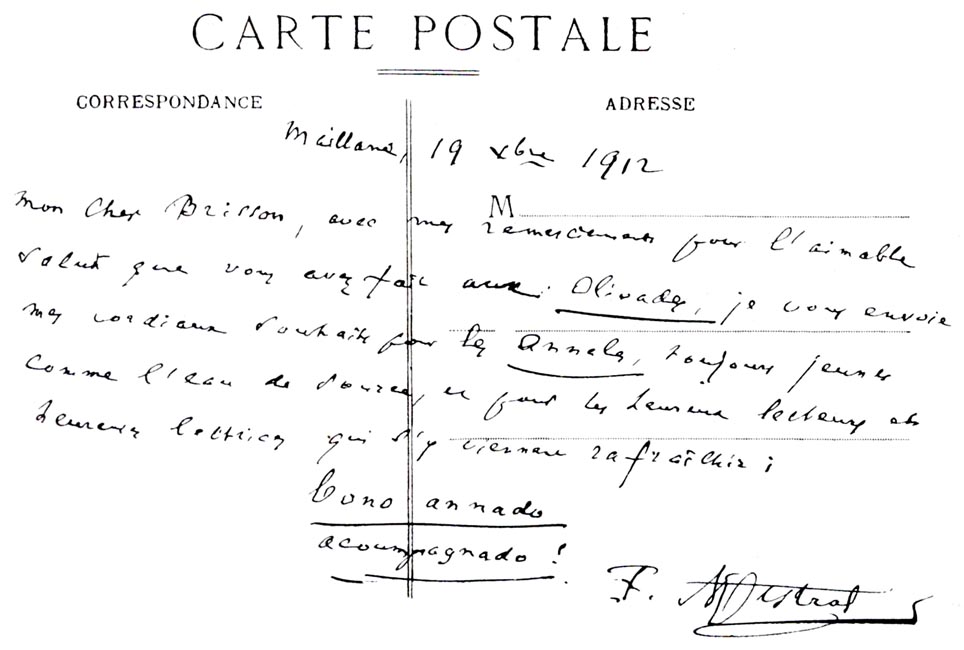 CARTE POSTALE
CORRESPONDANCE
ADRESSE
Maillane, 19 xbre 1912
M
Mon cher Brisson, avec mes remerciements pour l'aimable
salut que vous avez fait aux Olivades, je vous envoie
mes cordiaux souhaits pour les Annales, toujours jeunes
comme l'eau de source, et pour les heureux lecteurs et
heureuses lectrices qui s'y viennent rafraîchir :
bono annado
acoumpagnado !
F. Mistral